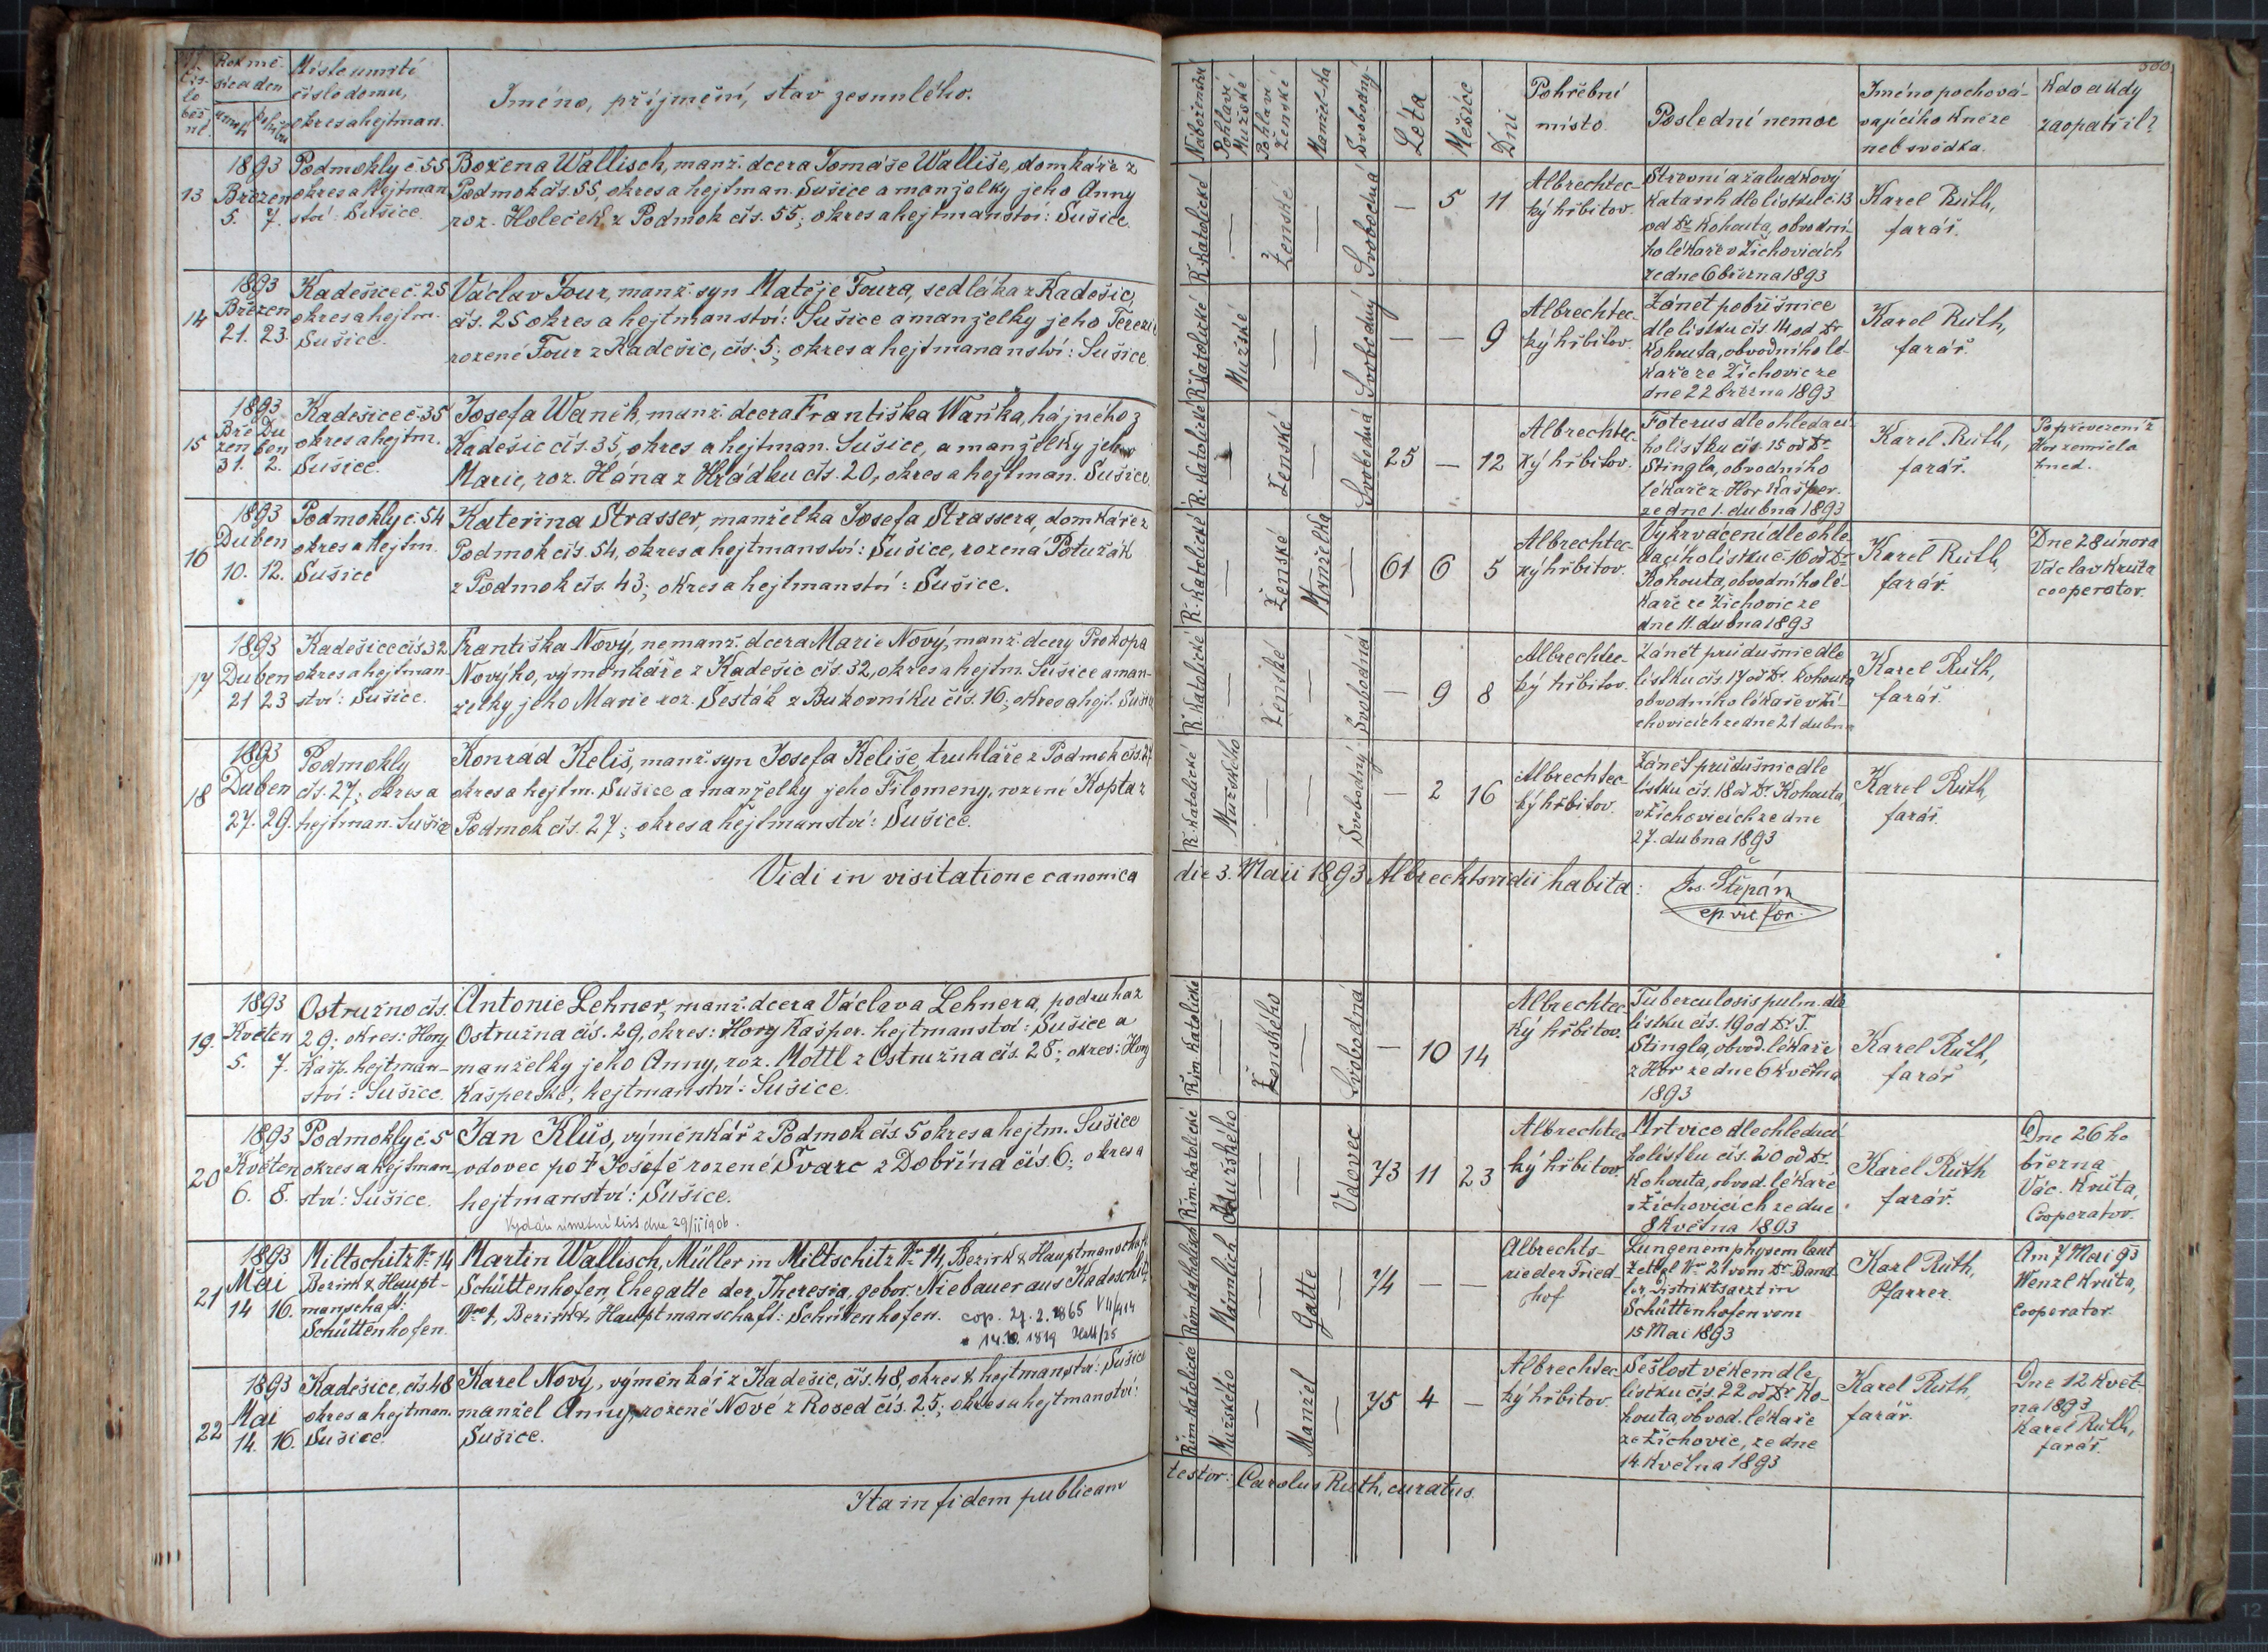 čís-
lo
běž
né.
Rok mě-
síc a den
úmrtí
pohřbu
Místo umrtí
číslo domu,
okres a hejtman.
Jméno, příjmení, stav zesnulého.
Náboženství
Pohlaví Mužské
Pohlaví Ženské
Manžel-ka
Svobodný-
Léta
Měsíce
Dni
Pohřební
místo.
Poslední nemoc
Jméno pochová-
vajícího kněze
neb svědka.
Kdo a kdy
zaopatřil?
300.
13
1893
Březen
5. 7.
Podmokly č. 55
okres a hejtman
ství: Sušice.
Božena Wallisch, manž. dcera Tomáše Walliše, domkáře z
Podmok čís. 55, okres a hejtman. Sušice a manželky jeho Anny
roz. Holeček z Podmok čís. 55; okres a hejtmanství: Sušice.
Ř. Katolické
—
Ženské
—
Svobodná
— 5 11
Albrechtec-
ký hřbitov.
Střevní a žaludkový
katarrh dle lístku č. 13
od Dr. Kohouta, obvodní-
ho lékaře v Žichovicích
ze dne 6 března 1893
Karel Rúth,
farář.
14
1893
Březen
21. 23.
Kadešice č. 25
okres a hejtm.
Sušice.
Václav Tour, manž. syn Matěje Toura, sedláka z Kadešic,
čís. 25 okres a hejtmanství: Sušice a manželky jeho Terezie
rozené Tour z Kadešic, čís. 5; okres a hejtmananství: Sušice.
Ř. Katolické
Mužské
—
—
Svobodný
— — 9
Albrechtec-
ký hřbitov.
Zánět pobřišnice
dle lístku čís. 14 od Dr
Kohouta, obvodního lé-
kaře ze Žichovic ze
dne 22 března 1893
Karel Rúth,
farář.
15
1893
Bře Du
zen ben
31. 2.
Kadešice č. 35
okres a hejtm.
Sušice.
Josefa Waněk, manž. dcera Františka Waňka, hájného z
Kadešic čís. 35, okres a hejtman. Sušice, a manželky jeho
Marie, roz. Hána z Hrádku čís. 20, okres a hejtman. Sušice.
Ř. Katolické
Ženské
—
Svobodná
25 — 12
Albrechtec-
ký hřbitov.
Foterus dle ohledací
ho lístku čís. 15 od Dr.
Stingla, obvodního
lékaře z Hor Kašper.
ze dne 1. dubna 1893
Karel Rúth,
farář.
Po převezení z
Hor zemřela
hned.
16
1893
Duben
10. 12.
Podmokly č. 54
okres a hejtm.
Sušice
Kateřina Strasser, manželka Josefa Strassera, domkáře z
Podmok čís. 54, okres a hejtmanství: Sušice, rozená Potužák
z Podmok čís. 43; okres a hejtmanství: Sušice.
Ř. Katolické
—
Ženské
Manželka
—
61 6 5
Albrechtec-
ký hřbitov.
Vykrvácení dle ohle-
dacího lístku č. 16 od Dr.
Kohouta, obvodního lé-
kaře ze Žichovic ze
dne 11. dubna 1893
Karel Rúth,
farář.
Dne 28 února
Václav Kruta
cooperator.
17
1893
Duben
21 23
Kadešice čís. 32
okres a hejtman
ství: Sušice.
Františka Nový, nemanž. dcera Marie Nový, manž. dcery Prokopa
Nového, výměnkáře z Kadešic čís. 32, okres a hejtm. Sušice a man-
želky jeho Marie roz. Šesták z Bukovníku čís. 16; okres a hejt. Sušice
Ř. Katolické
—
Ženské
—
Svobodná
— 9 8
Albrechtec-
ký hřbitov.
Zánět průdušnic dle
lístku čís. 17 od Dr. Kohouta
obvodního lékaře v Ži-
chovicích ze dne 21 dubna
Karel Rúth,
farář.
18
1893
Duben
27. 29.
Podmokly
čís. 27; okres a
hejtman. Sušice
Konrád Keliš, manž. syn Josefa Keliše, truhláře z Podmok čís. 27
okres a hejtm. Sušice a manželky jeho Filomeny, rozené Kopta z
Podmok čís. 27; okres a hejtmanství: Sušice.
Ř. Katolické
Mužského
—
—
Svobodný
— 2 16
Albrechtec-
ký hřbitov.
Zánět průdušnic dle
lístku čís. 18 od Dr. Kohouta
v Žichovicích ze dne
27. dubna 1893
Karel Rúth,
farář.
Vidi in visitatione canonica die 3. Maii 1893 Albrechtsridii habita:
Jos. Štěpán
ep. vic. for.
19.
1893
Květen
5. 7.
Ostružno čís.
29; okres: Hory
Kašp. hejtman-
ství: Sušice.
Antonie Lehner, manž. dcera Václava Lehnera, podruha z
Ostružna čís. 29, okres: Hory Kašper. hejtmanství: Sušice a
manželky jeho Anny, roz. Mottl z Ostružna čís. 28; okres: Hory
Kašperské, hejtmanství: Sušice.
Řím. Katolické
—
Ženského
—
Svobodná
— 10 14
Albrechtec-
ký hřbitov.
Tuberculosis pulm. dle
lístku čís. 19 od Dr. J.
Stingla, obvod. lékaře
z Hor ze dne 6 května
1893
Karel Rúth,
farář
20
1893
Květen
6. 8.
Podmokly č. 5
okres a hejtman
ství: Sušice.
Jan Klus, výměnkář z Podmok čís. 5 okres a hejtm. Sušice
vdovec po † Josefě rozené Švarc z Dobřína čís. 6; okres a
hejtmanství: Sušice.
Vydán úmrtní list dne 29/II 1906.
Řím. Katolické
Mužského
—
—
Vdovec
73 11 23
Albrechtec
ký hřbitov.
Mrtvice dle ohledací
ho lístku čís. 20 od Dr.
Kohouta, obvod. lékaře
v Žichovicích ze dne
8 května 1893
Karel Rúth
farář.
Dne 26 ho
března
Vác. Kruta,
Cooperator.
21
1893
Mai
14 16.
Miltschitz Nr 14
Bezirk & Haupt-
manschaft:
Schüttenhofen.
Martin Wallisch, Müller in Miltschitz Nr 14, Bezirk & Hauptmanschaft
Schüttenhofen, Ehegatte der Theresia, gebor. Niebauer aus Kadeschitz
Nro 1, Bezirk & Hauptmanschaft: Schüttenhofen. cop. 27. 2. 1865 VII/414
* 14.10. 1819
Röm. katholisch
Männlich
—
Gatte
—
74 — —
Albrechts-
rieder Fried-
hof
Lungenemphysem laut
Zettel Nr 21 vom Dr Band-
ler, Distriktsarzt in
Schüttenhofen vom
15 Mai 1893
Karl Rúth,
Pfarrer.
Am 7 Mai 93
Wenzl Kruta,
Cooperator.
22
1893
Mai
14. 16.
Kadešice, čís. 48
okres a hejtman.
Sušice.
Karel Nový, výměnkář z Kadešic, čís. 48, okres & hejtmanství: Sušice
manžel Anny, rozené Nové z Rosed čís. 25; okres a hejtmanství:
Sušice.
Řím. Katolické
Mužského
—
Manžel
—
75 4 —
Albrechtec-
ký hřbitov.
Sešlost věkem dle
lístku čís. 22 od Dr. Ko-
houta, obvod. lékaře
ze Žichovic, ze dne
14. května 1893
Karel Rúth,
farář.
Dne 12 květ-
na 1893
Karel Rúth,
farář.
Ita in fidem publicam testor: Carolus Rúth, curatus.
12